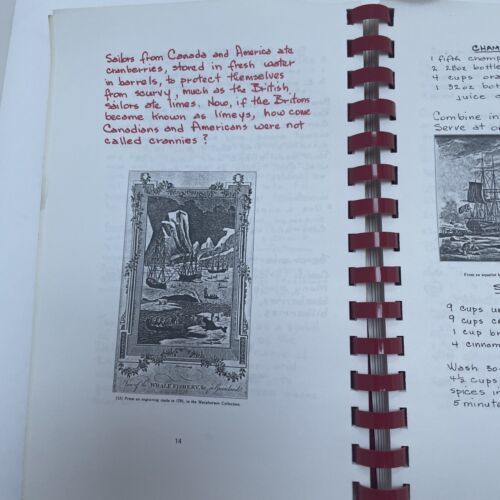 Sailors from Canada and America ate
cranberries, stored in fresh water
in barrels, to protect themselves
from scurvy, much as the British
sailors ate limes. Now, if the Britons
became known as limeys, how come
Canadians and Americans were not
called crannies?
View of the WHALE FISHERY, &c. in Greenland.
From an engraving made in in the Macpherson Collection.
14
CHAM
1 fifth champ
2 28oz bottle
4 cups ora
1 32oz bot
juice o
Combine in
Serve at o
From an
S
9 cups
9 cups c
1 cup br
4 cinnam
Wash
4½ cups
spices in
5 minute